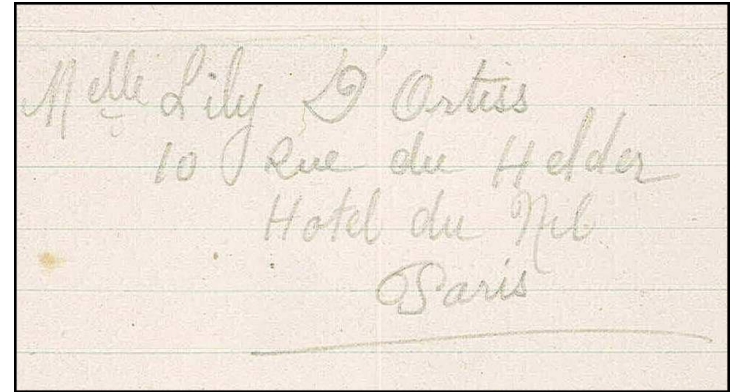 Melle Lily D'Ortiss
10 Rue du Helder
Hotel du Nil
Paris